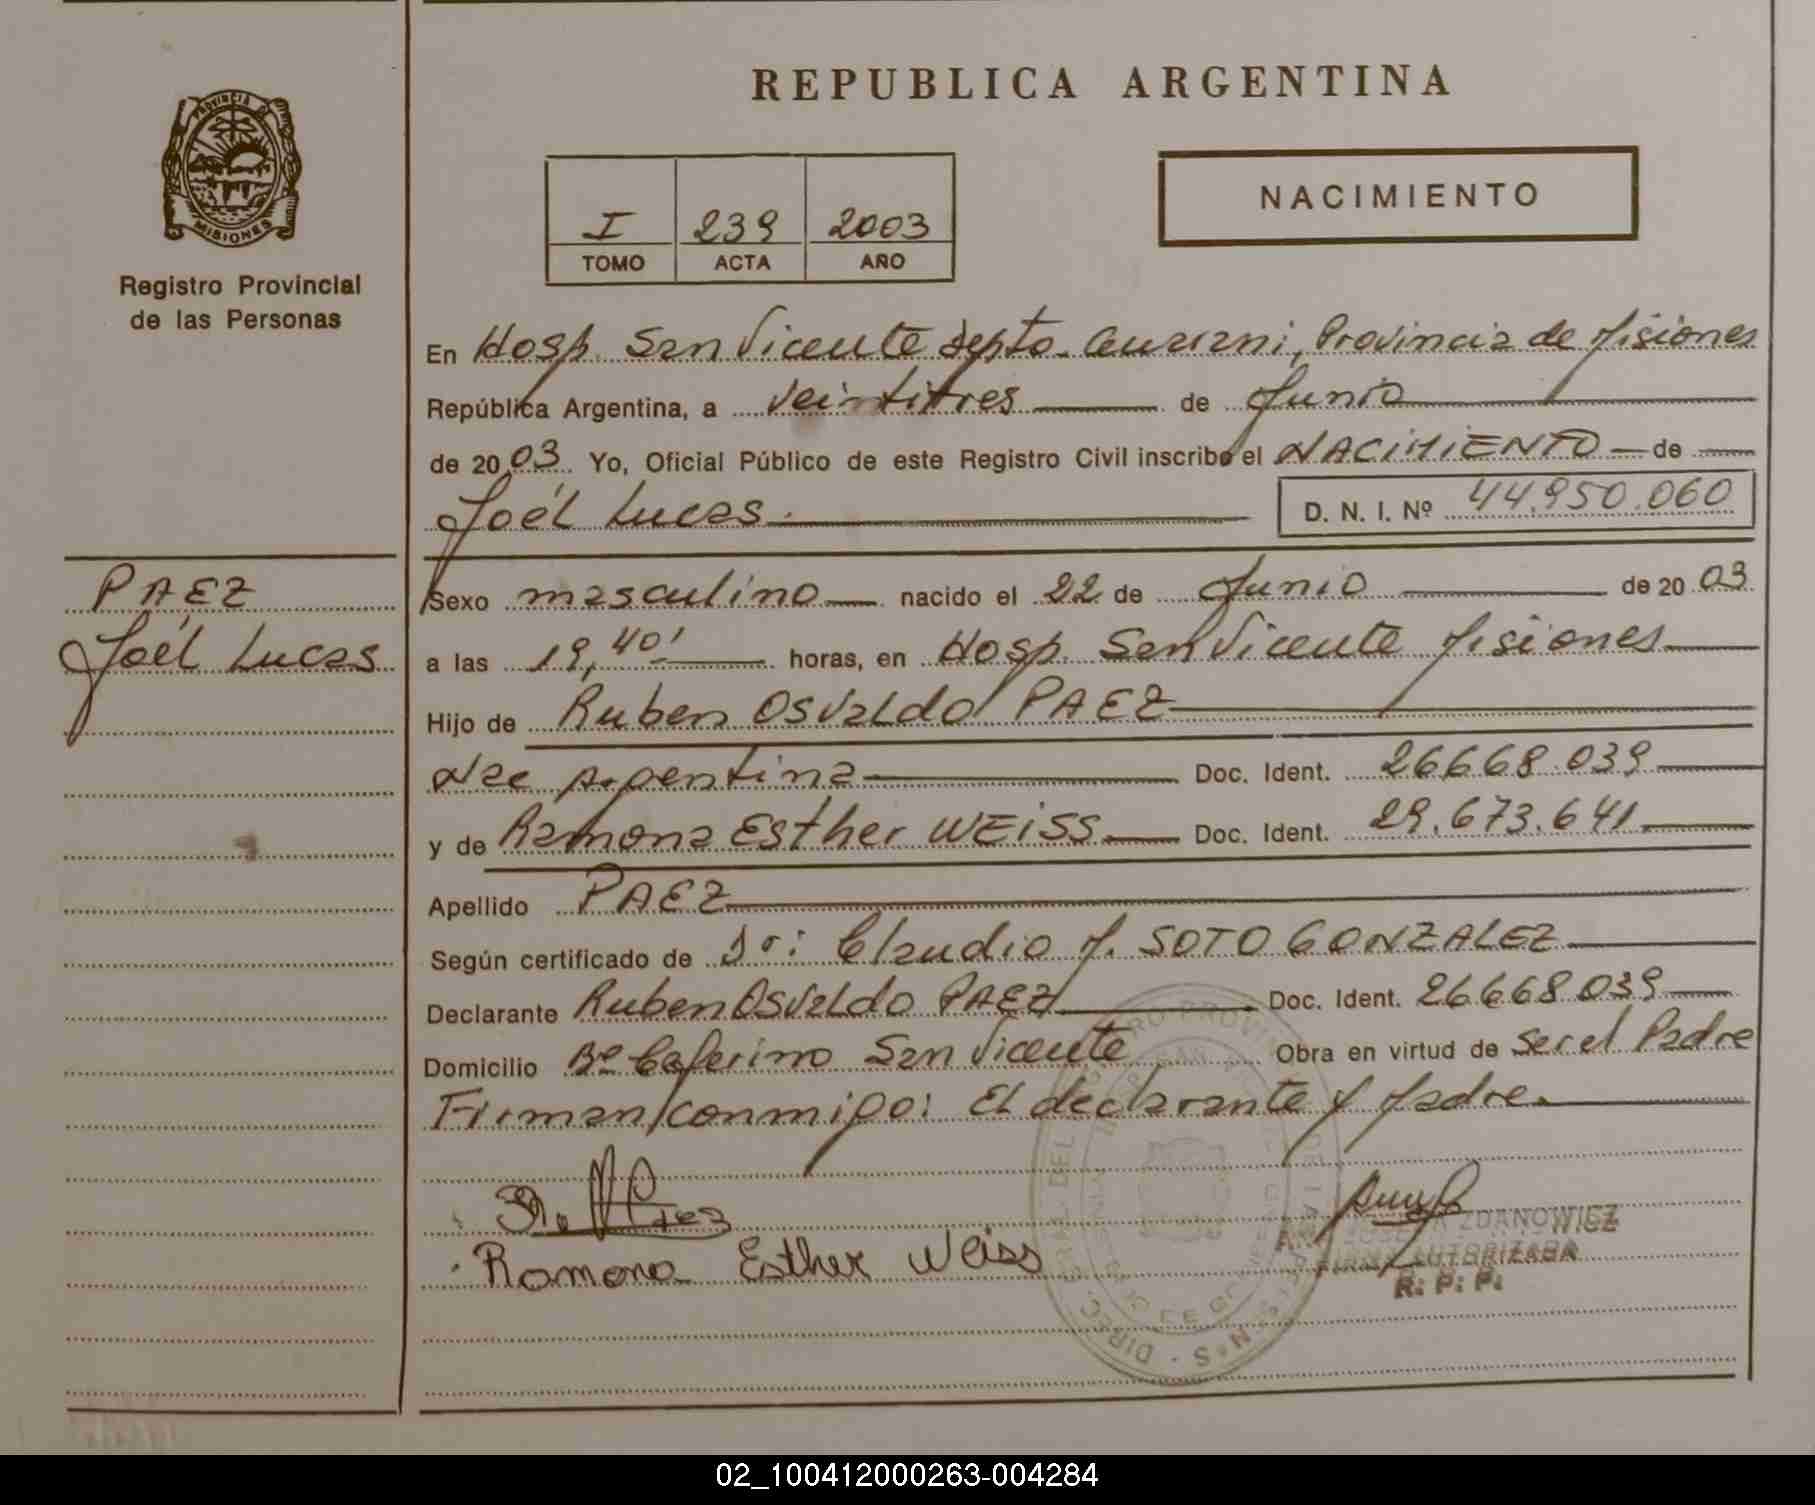 REPUBLICA ARGENTINA
PROVINCIA DE
MISIONES
Registro Provincial
de las Personas
I 239 2003
TOMO ACTA AÑO
NACIMIENTO
En Hosp. San Vicente Depto. Guarani, Provincia de Misiones
República Argentina, a veintitres de Junio
de 2003. Yo, Oficial Público de este Registro Civil inscribo el NACIMIENTO de
Joél Lucas.
D. N. I. Nº 44.950.060
PAEZ
Joél Lucas
Sexo masculino nacido el 22 de Junio de 2003
a las 19,40' horas, en Hosp. San Vicente Misiones
Hijo de Ruben Osvaldo PAEZ
Nac Argentina Doc. Ident. 26668.039
y de Ramona Esther WEISS Doc. Ident. 29.673.641
Apellido PAEZ
Según certificado de Dr: Claudio M. SOTO GONZALEZ
Declarante Ruben Osvaldo PAEZ Doc. Ident. 26668.039
Domicilio Bº Ceferino San Vicente Obra en virtud de ser el Padre
Firman conmigo: El declarante y Madre.
Ramona Esther Weiss
ZDANOWICZ
FIRMA AUTORIZADA
R. P. P.
02_100412000263-004284